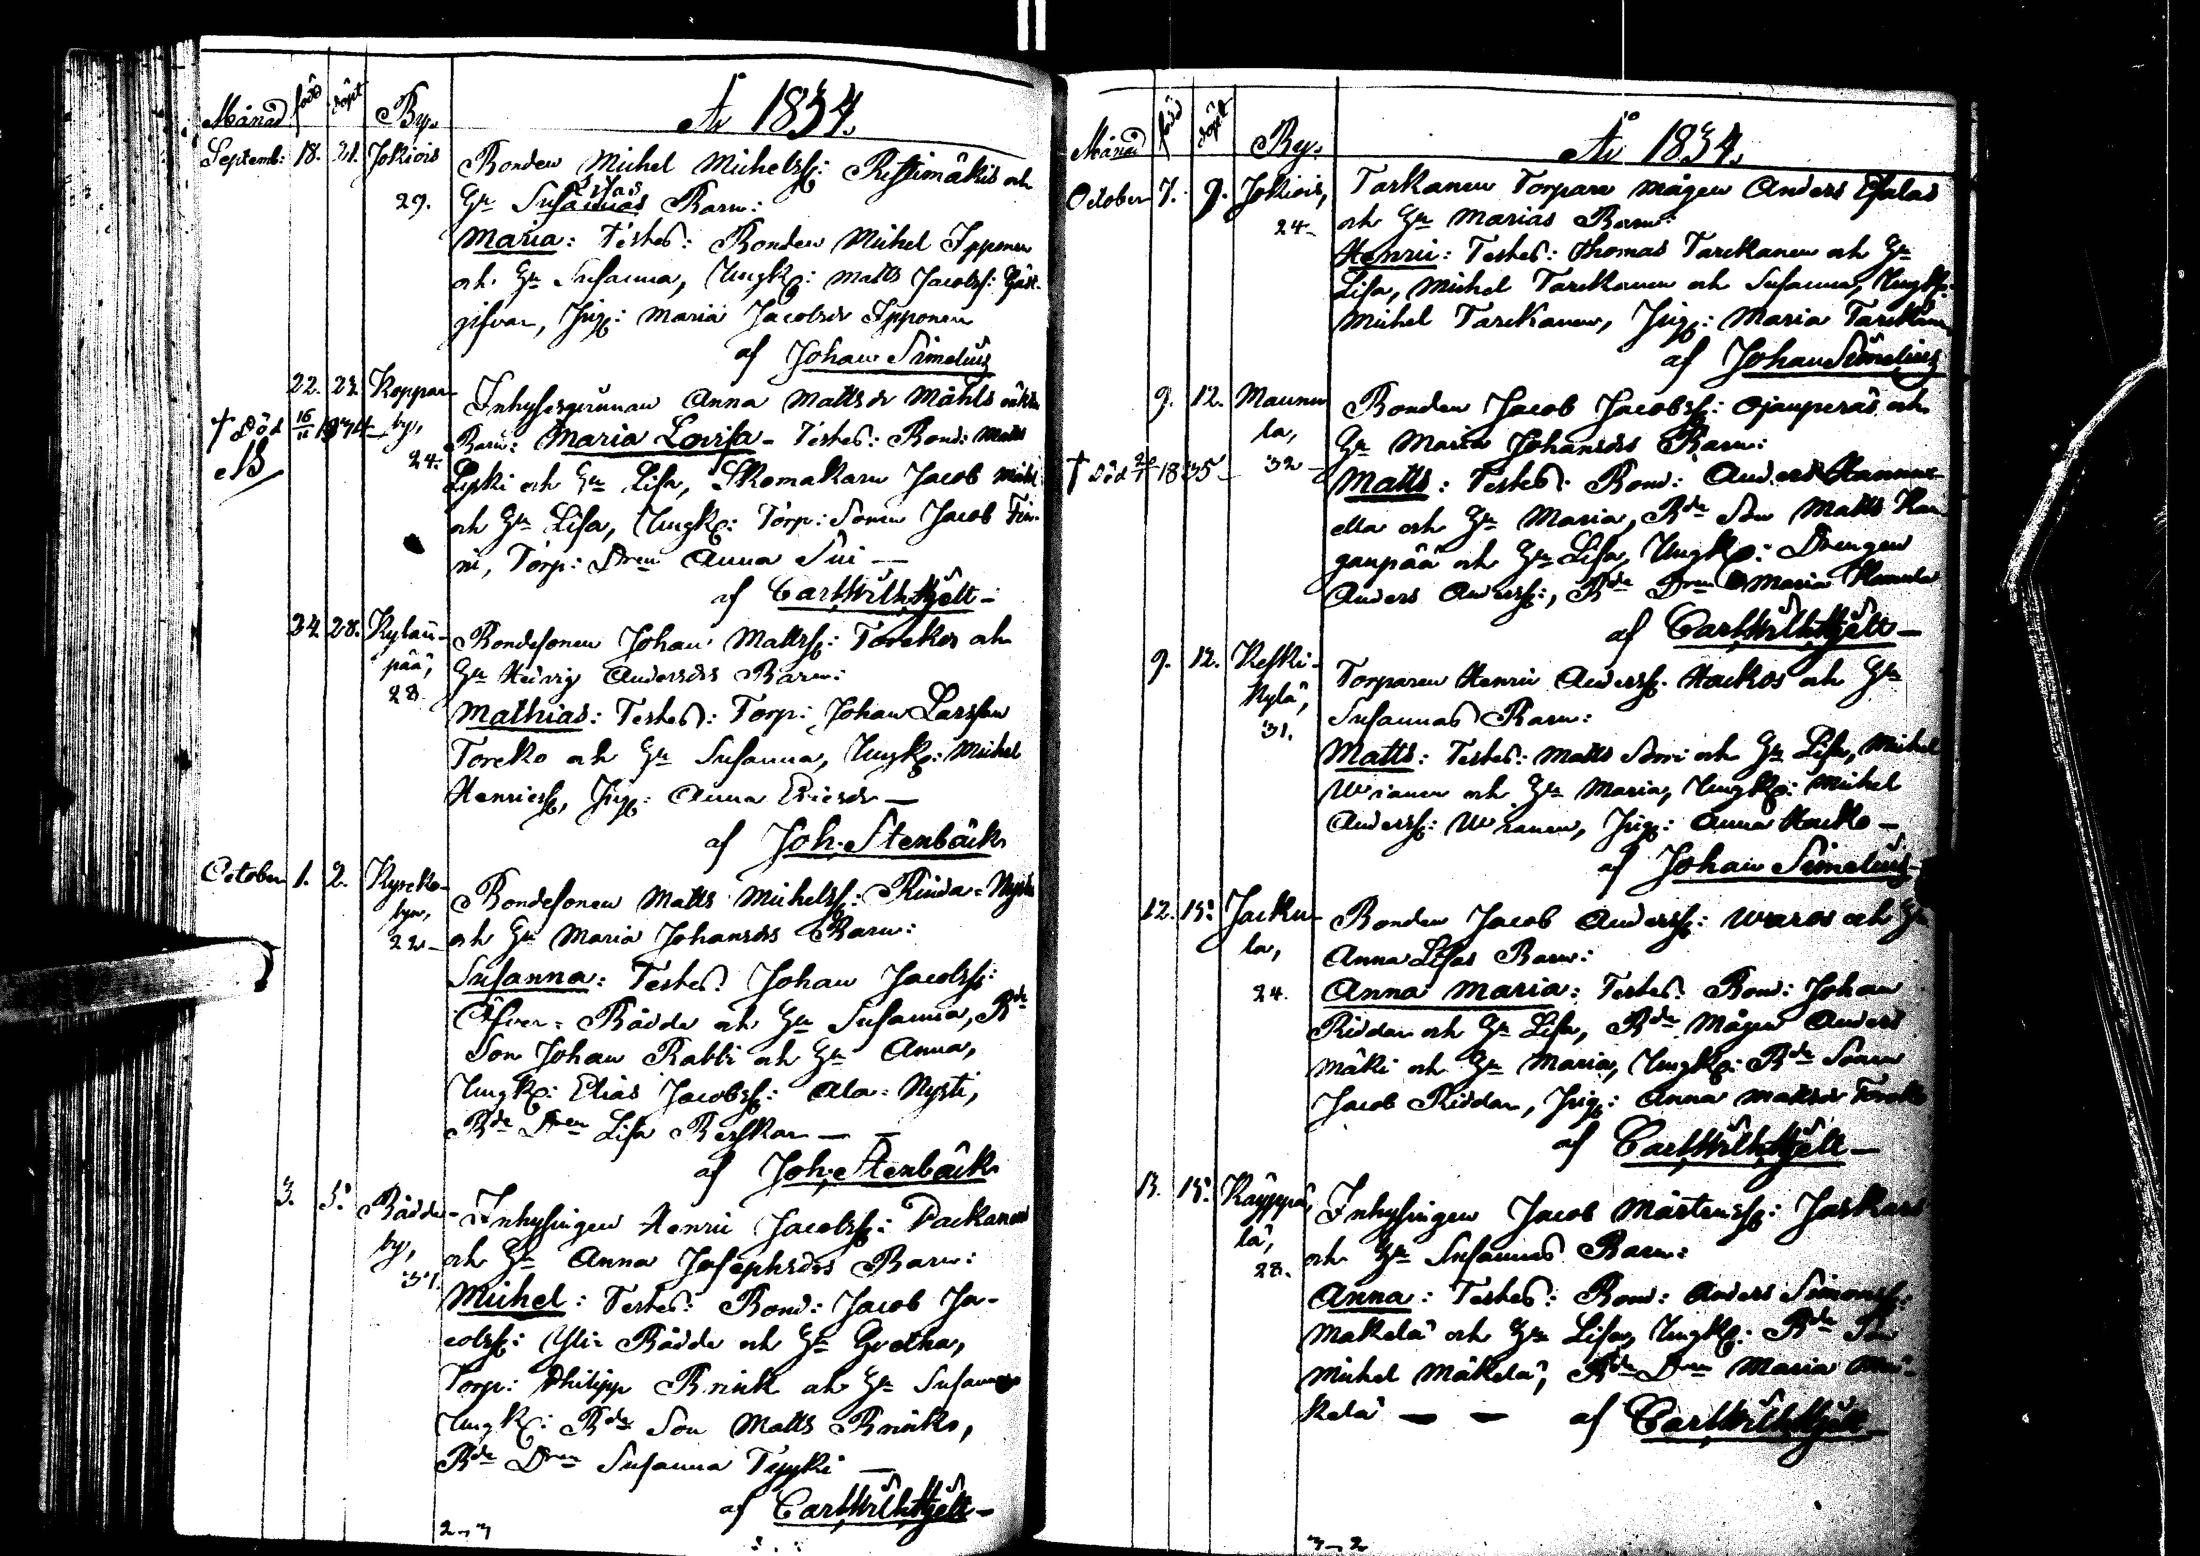 Månad född döpt By. År 1834.
Septemb: 18. 21. Jokiois Bonden Michel Michelsss: Ristimäkis och
29. Hu Susannas Lisas Barn:
Maria: Testes: Bonden Michel Ipponen
och Hu Susanna, Ungk: Matts Jacobss: Gäst-
gifvar, Pig: Maria Jacobsdr Ipponen
af Johan Simelius
22. 23. Koppar- Inhyseqvinnan Anna Mattsdr Mähls oäkta
† Död 16/11 1874 by, Barn: Maria Lovisa - Testes: Bond: Matts
NB 24. Lipki och Hu Lisa, Skomakarn Jacob Mähl
och Hu Lisa, Ungk: Torp: Sonen Jacob
ni, Torp: Dren Anna Sui —
af Carl Wilh. Hjelt -
24. 28. Kylän- Bondesonen Johan Mattss: Torekos och
pää, Hu Hedvig Andersdrs Barn:
28. Mathias: Testes: Torp: Johan Larsson
Toreko och Hu Susanna, Ungk: Michel
Henricss, Pig: Anna Ericsdr —
af Joh. Stenbäck
October 1. 2. Kyrcko- Bondesonen Matts Michelss: Rinda-Nysti
byn, och Hu Maria Johansdrs Barn:
22- Susanna: Testes: Johan Jacobss:
Öfver-Rådda och Hu Susanna, Bde
Son Johan Rabbi och Hu Anna,
Ungk: Elias Jacobss: Ala-Nysti,
Bde Dren Lisa Besskar —
af Joh. Stenbäck
3. 5. Rådda- Inhysingen Henric Jacobss: Packanens
by, och Hu Anna Josephsdrs Barn:
37. Michel: Testes: Bond: Jacob Ja-
cobss: Yli-Rådda och Hu Gretha,
Torp: Philipp Brink och Hu Susanna
Ungk: Bde Son Matts Knuuko,
Bde Dren Susanna Typpki —
af Carl Wilh. Hjelt -
2-3
Månad född döpt By. År 1834.
October 7. 9. Jokiois, Tarkanen Torpare Mågen Anders Esalas
24- och Hu Marias Barn:
Henric: Testes: Thomas Tarckanen och Hu
Lisa, Michel Tarckanen och Susanna, Ungk:
Michel Tarckanen, Pig: Maria Tarckanen
af Johan Simelius
9. 12. Maunu- Bonden Jacob Jacobss: Ojanperäs och
la, Hu Maria Johansdrs Barn:
† Död 1835 - 32- Matts: Testes: Bond: Anders Hannu-
ella och Hu Maria, Bde Son Matts Kan-
ganpää och Hu Lisa, Ungk: Drengen
Anders Anderss:, Bde Dren Maria Hannula
af Carl Wilh. Hjelt —
9. 12. Keski- Torparen Henric Anderss: Hackos och Hu
kylä, Susannas Barn:
31. Matts: Testes: Matts Soini och Hu Lisa, Michel
Wianen och Hu Maria, Ungk: Michel
Anderss: Wianen, Pig: Anna Hacko —
af Johan Simelius
12. 15. Jacku- Bonden Jacob Anderss: Waros och Hu
la, Anna Lisas Barn:
24. Anna Maria: Testes: Bond: Johan
Riddar och Hu Lisa, Bde Mågen Anders
Mäki och Hu Maria, Ungk: Bde Sonen
Jacob Riddar, Pig: Anna Mattsdr Toreko
af Carl Wilh. Hjelt —
13. 15. Käyppä- Inhysingen Jacob Mårtenss: Jaskars
lä, och Hu Susannas Barn:
28. Anna: Testes: Bond: Anders Simonss:
Mäkelä och Hu Lisa, Ungk: Bde Son
Michel Mäkelä, Bde Dren Maria Mä-
kelä — — af Carl Wilh. Hjelt
3-2